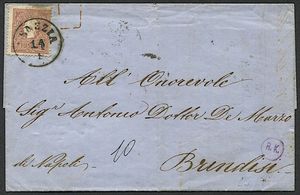 14
All' Onorevole
Sigr Antonio Dottor De Marzo
di Napoli
10
Brindisi
R. K.